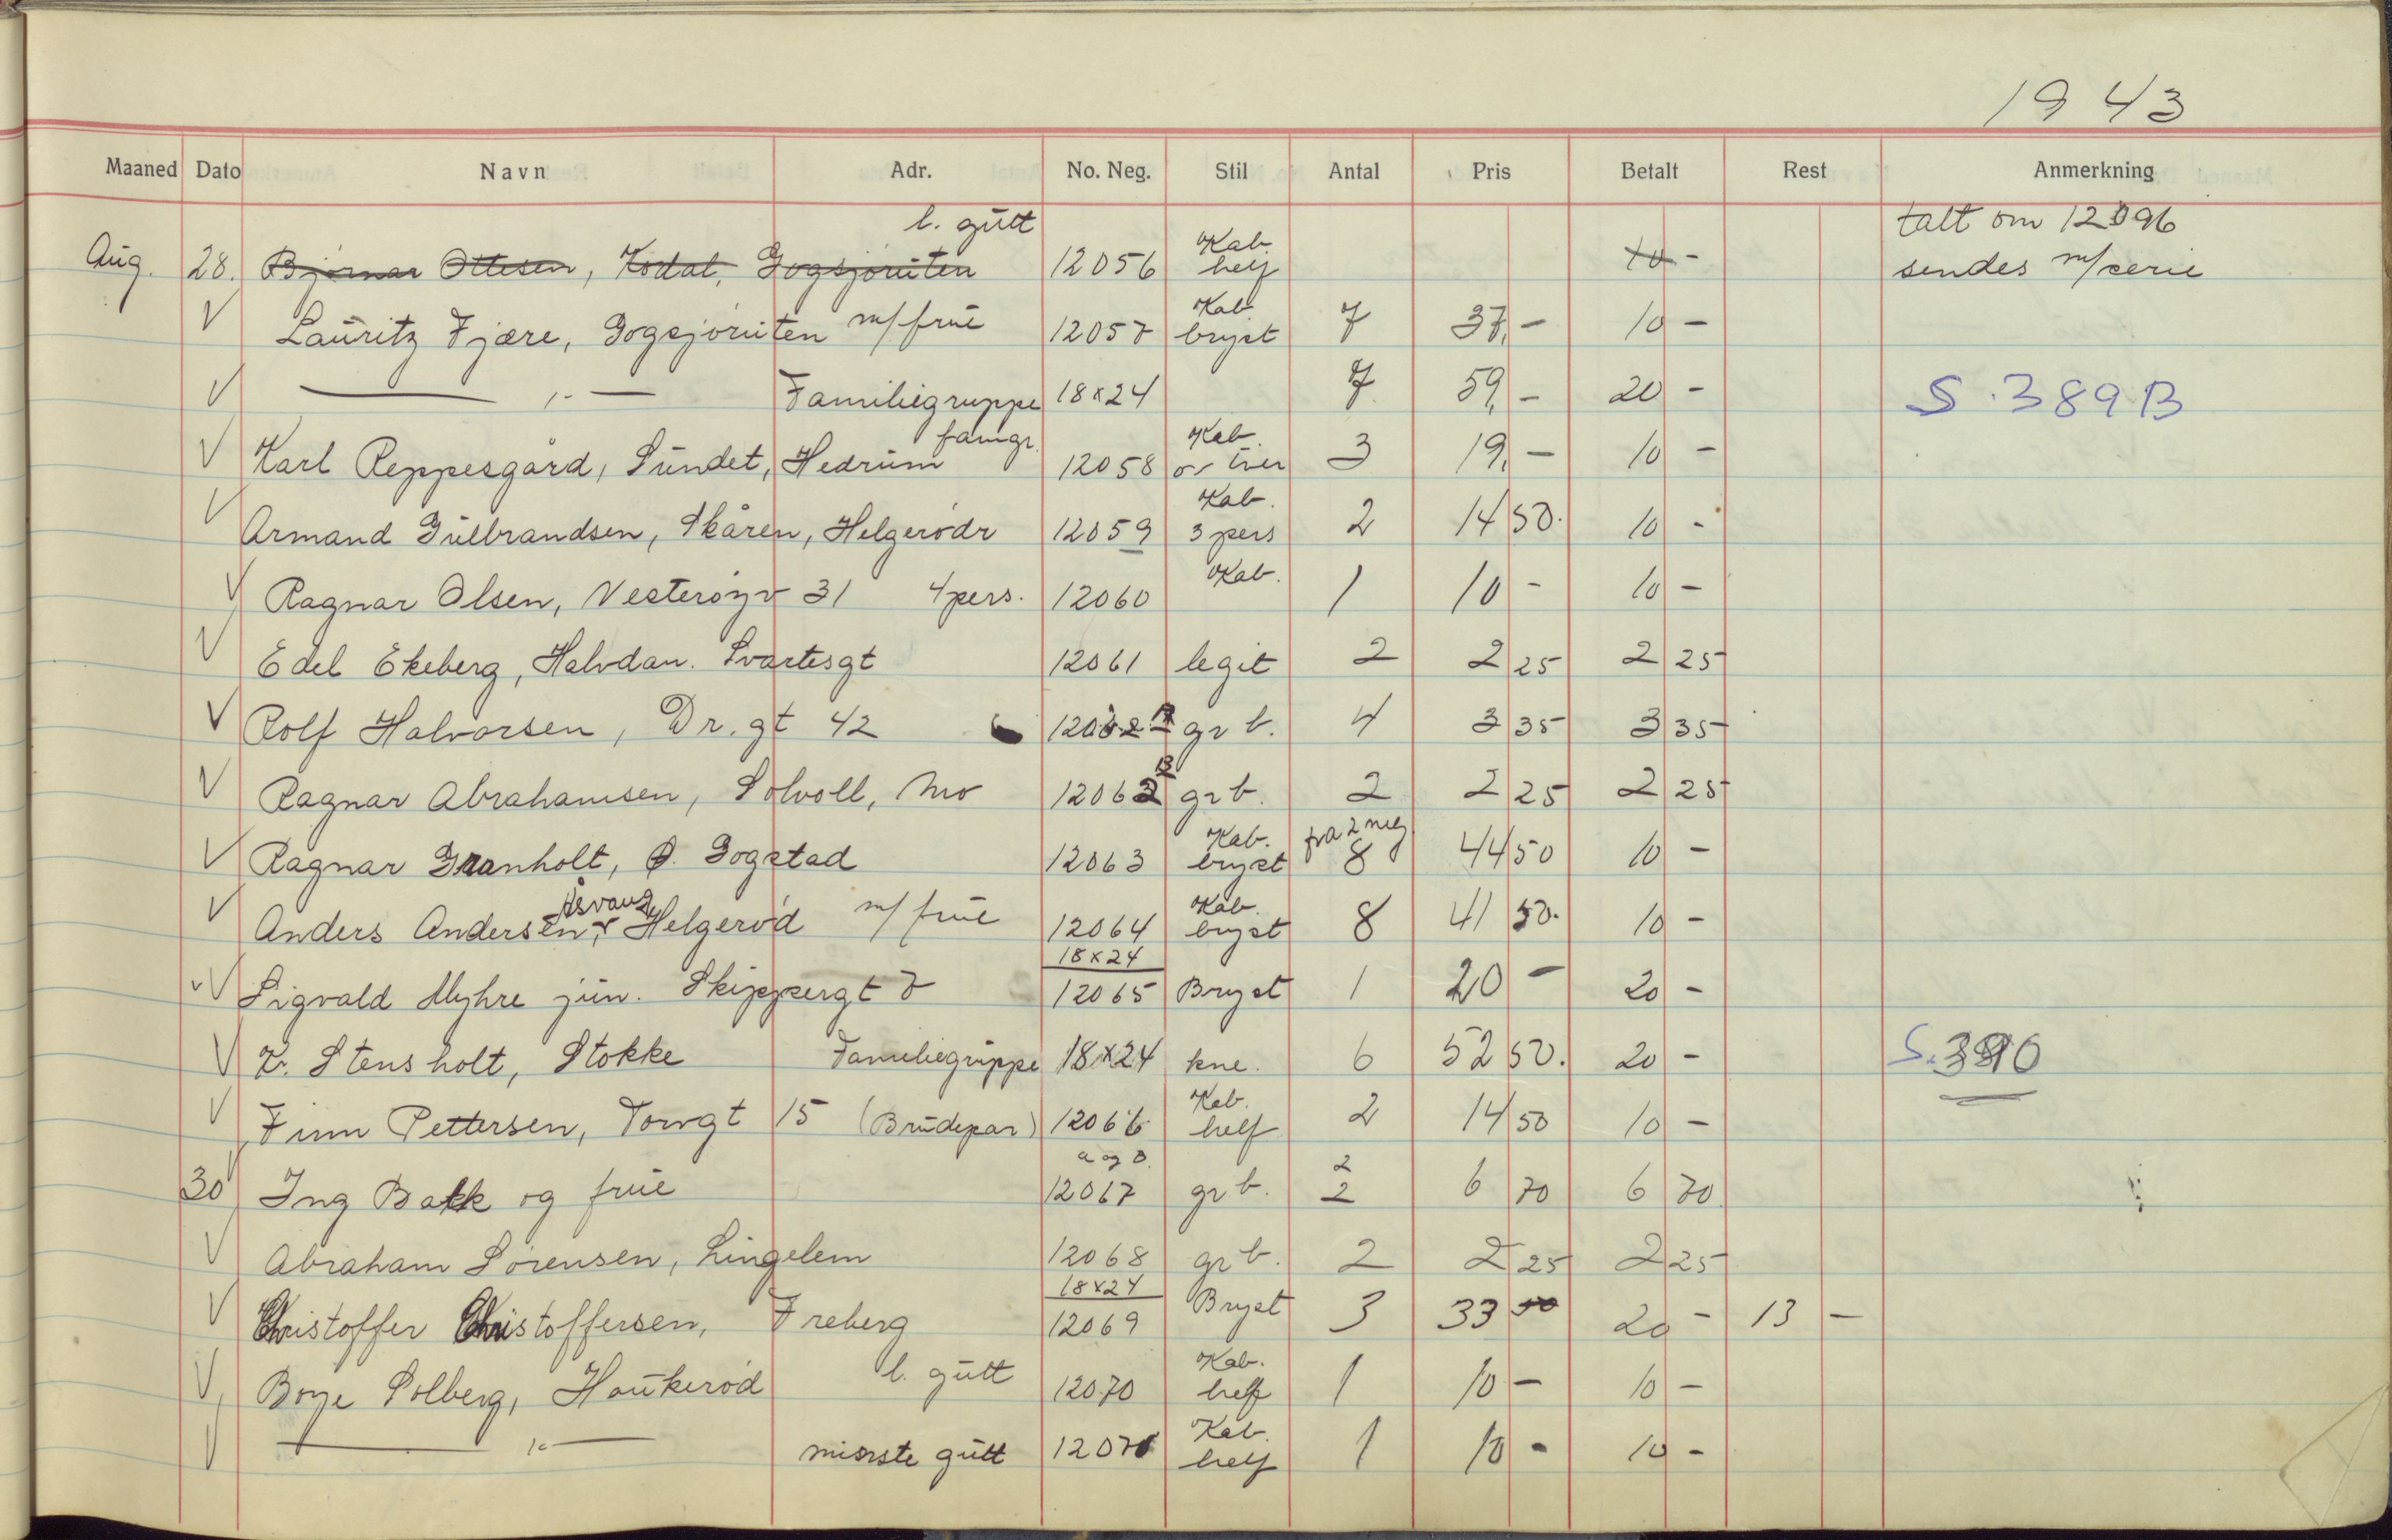 1943
Maaned Dato Navn Adr. No. Neg. Stil Antal Pris Betalt Rest Anmerkning
l. gutt Kab. talt om 12096
Aug. 28. Bjørnar Ottesen, Kodal, Gogsjøruten 12056 helf 10 - sendes m/serie
V Lauritz Fjære, Gogsjøruten m/frue 12057 Kab bryst 7 37,- 10 -
V —— " —— Familiegruppe 18x24 7 59,- 20 - S. 389 B
V Karl Reppesgård, Sundet, Hedrum famgr. 12058 Kab. 3 19,- 10 -
V Armand Gulbrandsen, Skåren, Helgerødr 12059 Kab. 3 pers 2 14 50. 10 -
V Ragnar Olsen, Vesterøyv 31 4 pers. 12060 Kab. 1 10 - 10 -
V Edel Ekeberg, Halvdan. Svartesgt 12061 legit 2 2 25 2 25
V Rolf Halvorsen, Dr. gt 42 12062 gr b. 4 3 35 3 35
V Ragnar Abrahamsen, Solvoll, Mo 12062 B gr b. 2 2 25 2 25
V Ragnar Granholt, Ø. Gogstad 12063 Kab. bryst fra 2 neg 8 44 50 10 -
V Anders Andersen, Åsvang, Helgerød m/frue 12064 Kab. bryst 8 41 50. 10 -
V Sigvald Myhre jun. Skippergt 7 18x24 12065 Bryst 1 20 - 20 -
V K. Stensholt, Stokke Familiegruppe 18x24 kne. 6 52 50. 20 - S. 390
V Finn Pettersen, Torvgt 15 (Brudepar) 12066 Kab. helf 2 14 50 10 -
30 Ing Bakk og frue a og B. 12067 gr b. 2 2 6 70 6 70
V Abraham Sørensen, Lingelem 12068 gr b. 2 2 25 2 25
V Christoffer Christoffersen, Freberg 18x24 12069 Bryst 3 33 50 20 - 13 -
V Borge Solberg, Haukerød l. gutt 12070 Kab. helf 1 10 - 10 -
V —— " —— minste gutt 12071 Kab. helf 1 10 - 10 -